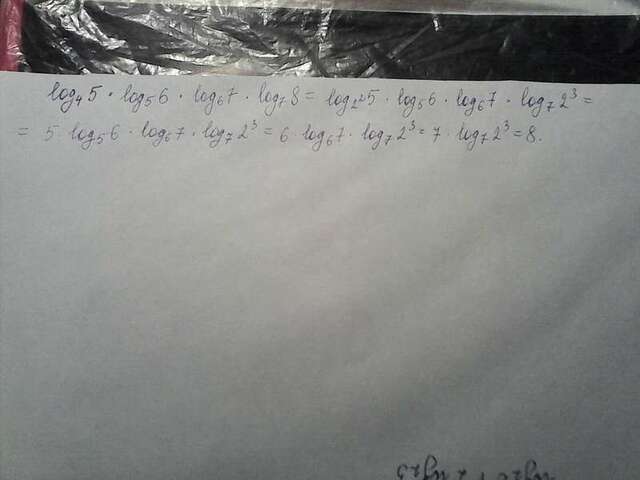 log₄5 · log₅6 · log₆7 · log₇8 = log₂²5 · log₅6 · log₆7 · log₇2³ =
= 5 · log₅6 · log₆7 · log₇2³ = 6 · log₆7 · log₇2³ = 7 · log₇2³ = 8.